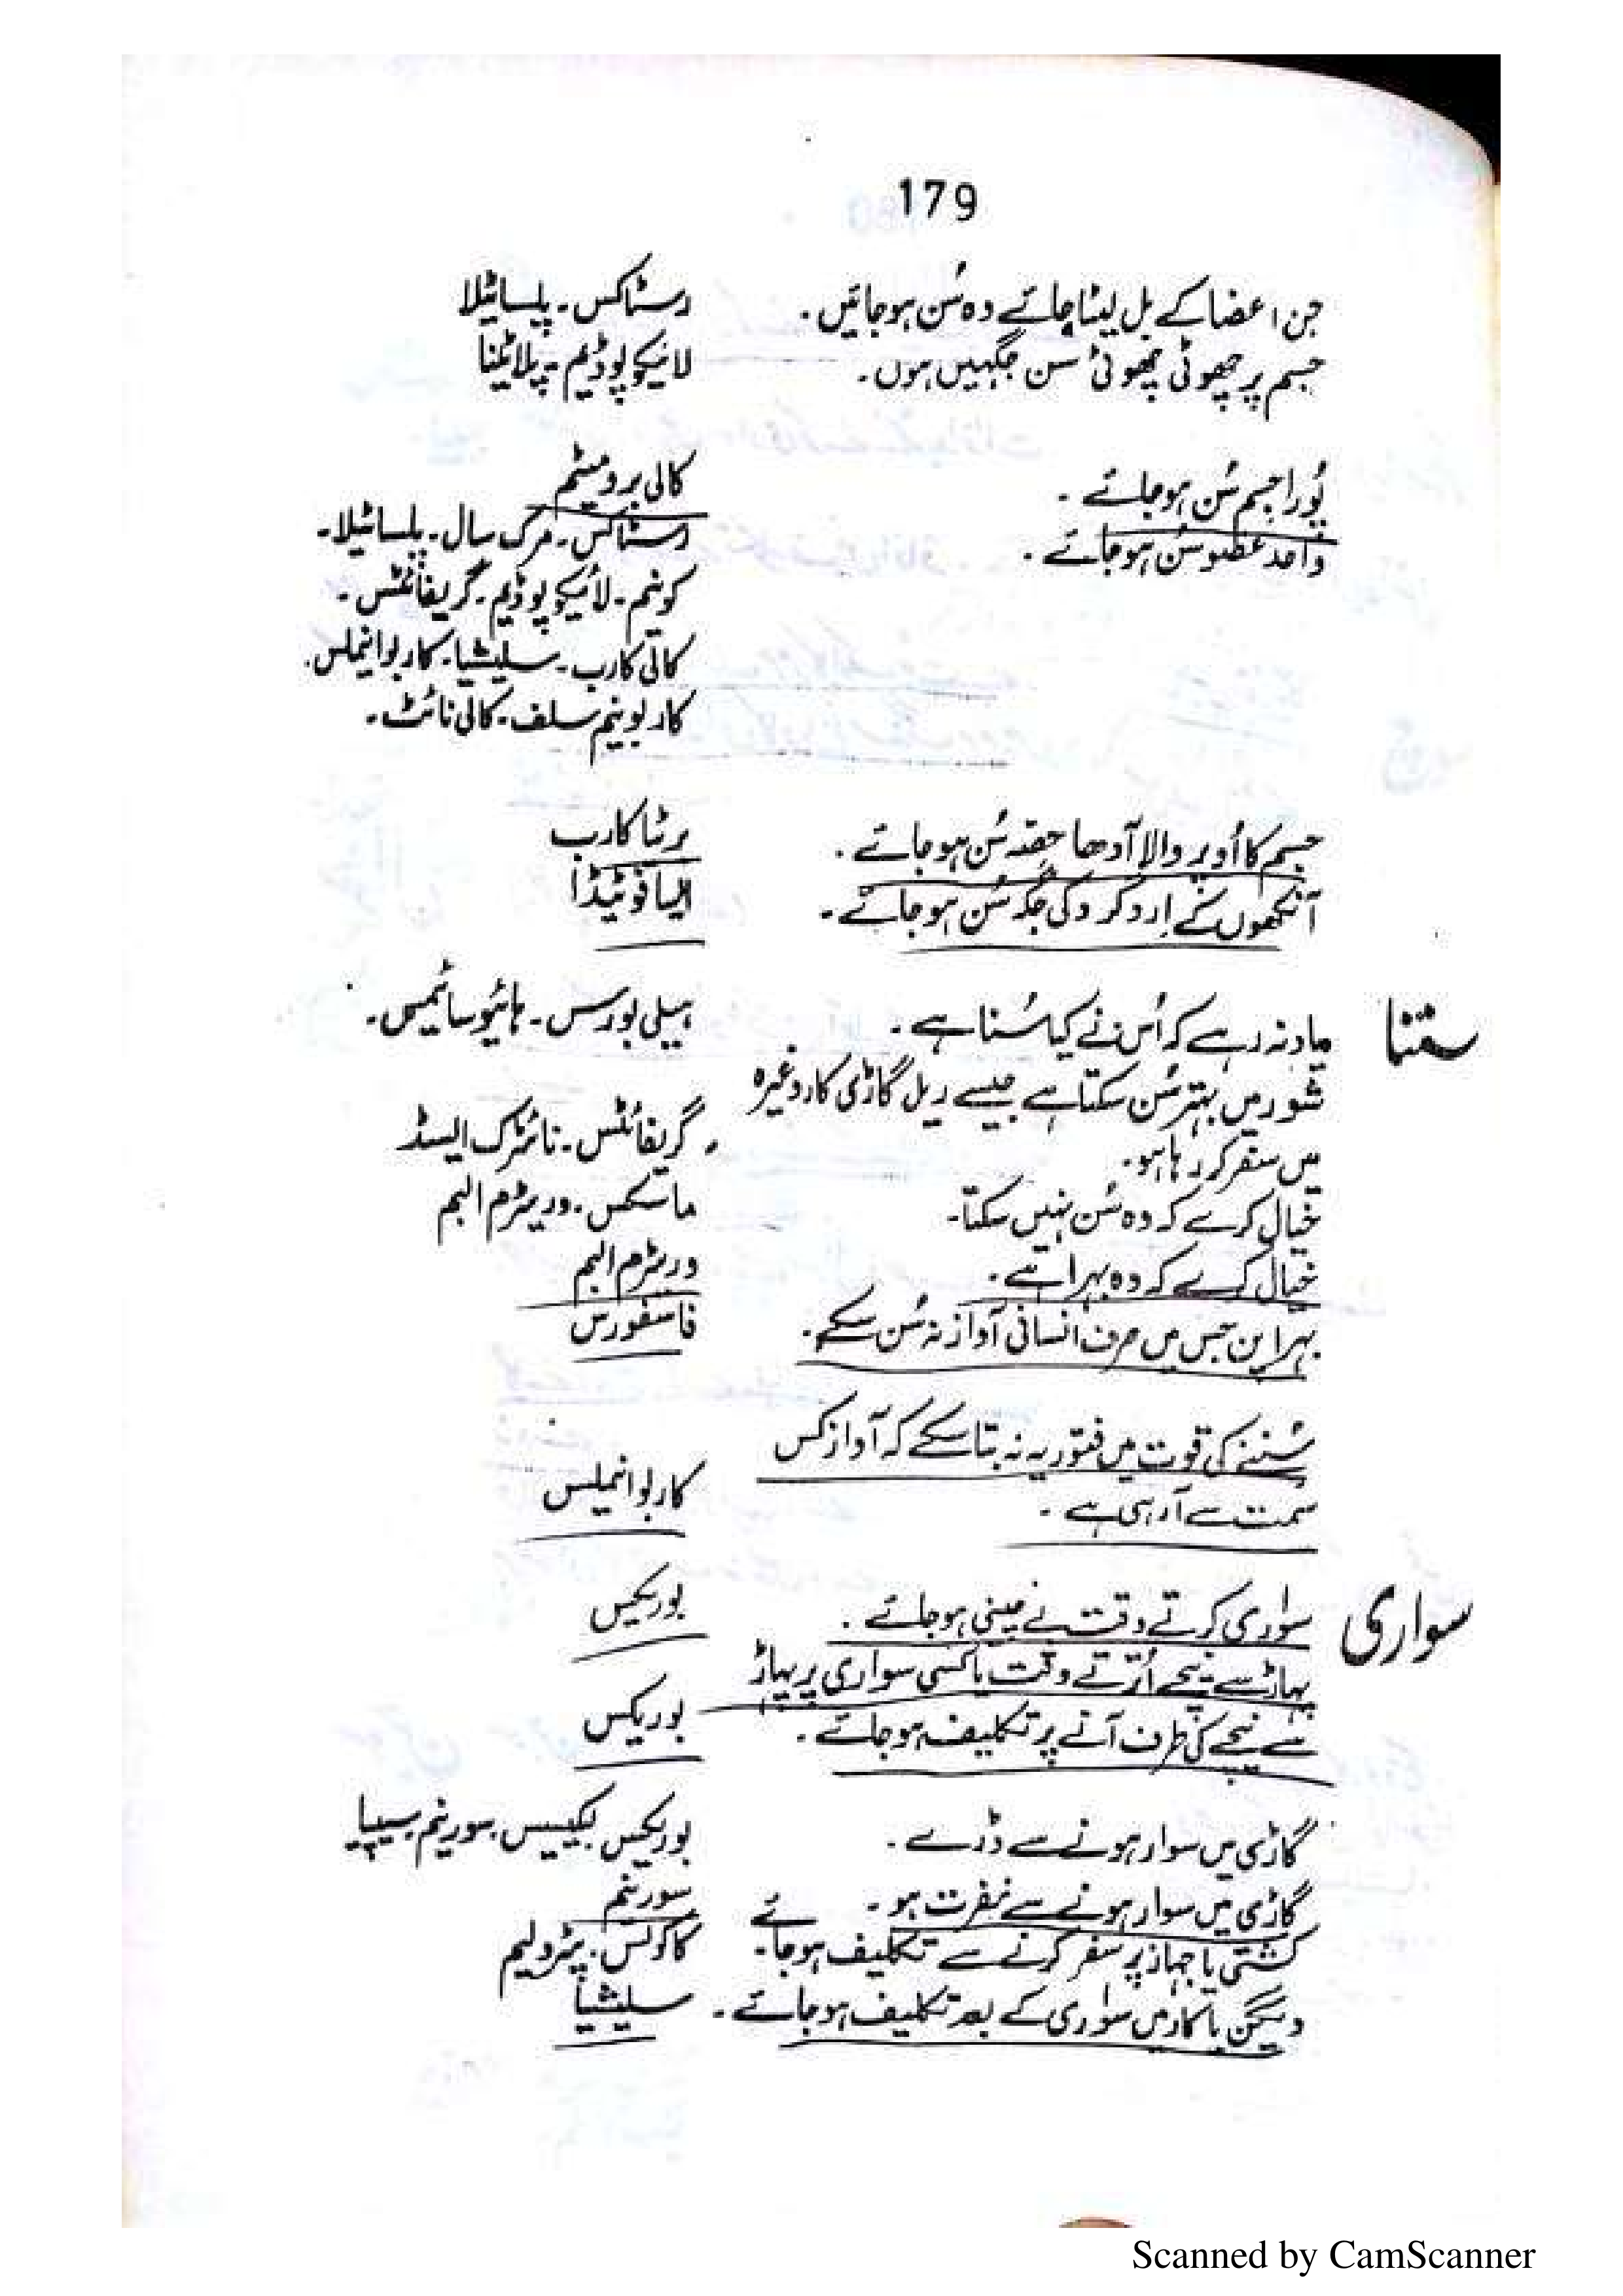 179
جن اعضا کے بل لیٹا جائے وہ سُن ہو جائیں۔ رسٹاکس۔ پلساٹیلا
جسم پر چھوٹی چھوٹی سن جگہیں ہوں۔ لائیکوپوڈیم۔ پلاٹینا
پُورا جسم سُن ہو جائے۔ کالی برومیٹم
واحد عضو سُن ہو جائے۔ رسٹاکس۔ مرک سال۔ پلساٹیلا۔
کونیم۔ لائیکوپوڈیم۔ گریفائٹس۔
کالی کارب۔ سلیشیا۔ کاربوانیملس۔
کاربونیم سلف۔ کالی نائٹ۔
جسم کا اُوپر والا آدھا حِصّہ سُن ہو جائے۔ برٹا کارب
آنکھوں کے اِرد گرد کی جگہ سُن ہو جائے۔ ایسا فوٹیڈا
سننا یاد نہ رہے کہ اُس نے کیا سُنا ہے۔ ہیلی بورس۔ ہائیوسائمیس۔
شور میں بہتر سُن سکتا ہے جیسے ریل گاڑی کار وغیرہ
میں سفر کر رہا ہو۔ گریفائٹس۔ نائٹرک ایسڈ
خیال کرے کہ وہ سُن نہیں سکتا۔ ماسکس۔ وریٹرم البم
خیال کرے کہ وہ بہرا ہے۔ وریٹرم البم
بہرا پن جس میں صرف انسانی آواز نہ سُن سکے۔ فاسفورس
سُننے کی قوت میں فتور یہ نہ بتا سکے کہ آواز کس
سمت سے آ رہی ہے۔ کاربوانیملس
سواری سواری کرتے وقت بے چینی ہو جائے۔ بوریکس
پہاڑ سے نیچے اُترتے وقت یا کسی سواری پر پہاڑ
سے نیچے کی طرف آنے پر تکلیف ہو جائے۔ بوریکس
گاڑی میں سوار ہونے سے ڈرے۔ بوریکس۔ لیکیسس۔ سورنیم۔ سیپیا
گاڑی میں سوار ہونے سے نفرت ہو۔ سورنیم
کشتی یا جہاز پر سفر کرنے سے تکلیف ہو جائے۔ کاکولس۔ پٹرولیم
ویگن یا کار میں سواری کے بعد تکلیف ہو جائے۔ سلیشیا
Scanned by CamScanner